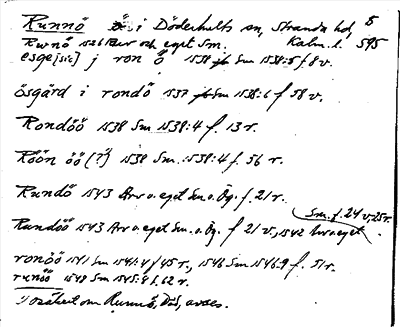 Runnö ö: i Döderhults sn, Stranda hd, 5
Runö 1526 Rev och eget Sm. Kalm. l. 595
esge[sic] j ron ö 1538 Sm 1538:5 f 8 v.
ösgård i rondö 1537 Sm 1538:6 f 58 v.
Rondöö 1538 Sm 1538:4 f. 13 r.
Röön öö (?) 1538 Sm. 1538:4 f. 56 r.
Rundö 1543 Arv o. eget Sm. o. Ög. f. 21 r.
Sm. f. 24 v, 25 r.
Rundöö 1543 Arv o. eget Sm. o. Ög. f 21 v, 1542 Arv o eget
ronöö 1541 Sm 1541:4 f 45 r., 1546 Sm 1546:9 f. 51 r.
runöö 1548 Sm 1548:8 f. 62 r.
om Runnö, Död, avses.